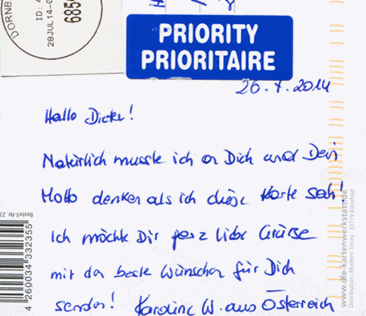 DORNB
ID:
28JUL14-0
6850
PRIORITY
PRIORITAIRE
26.7.2014
Hallo Dieter!
Natürlich musste ich an Dich und Dein
Motto denken als ich diese Karte sah!
Ich möchte Dir ganz liebe Grüsse
mit den beste Wünschen für Dich
senden! Karoline W. aus Österreich
Bestell-Nr. 23
4 260034 332355
www.die-kartenwerkstatt.de